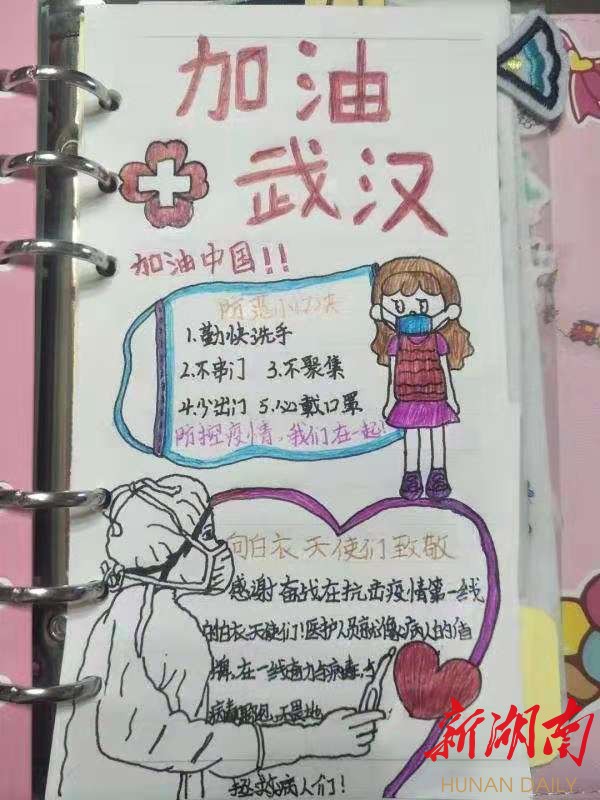 加油
武汉
加油中国!!
防恐小
1.勤快洗手
2.不串门 3.不聚集
4.少出门 5.必戴口罩
防控疫情,我们在一起!
向白衣天使们致敬
感谢奋战在抗击疫情第一线
的白衣天使们!医护人员就像病人的
在一线与病毒
病毒 无畏地
拯救病人们!
新湖南
HUNAN DAILY